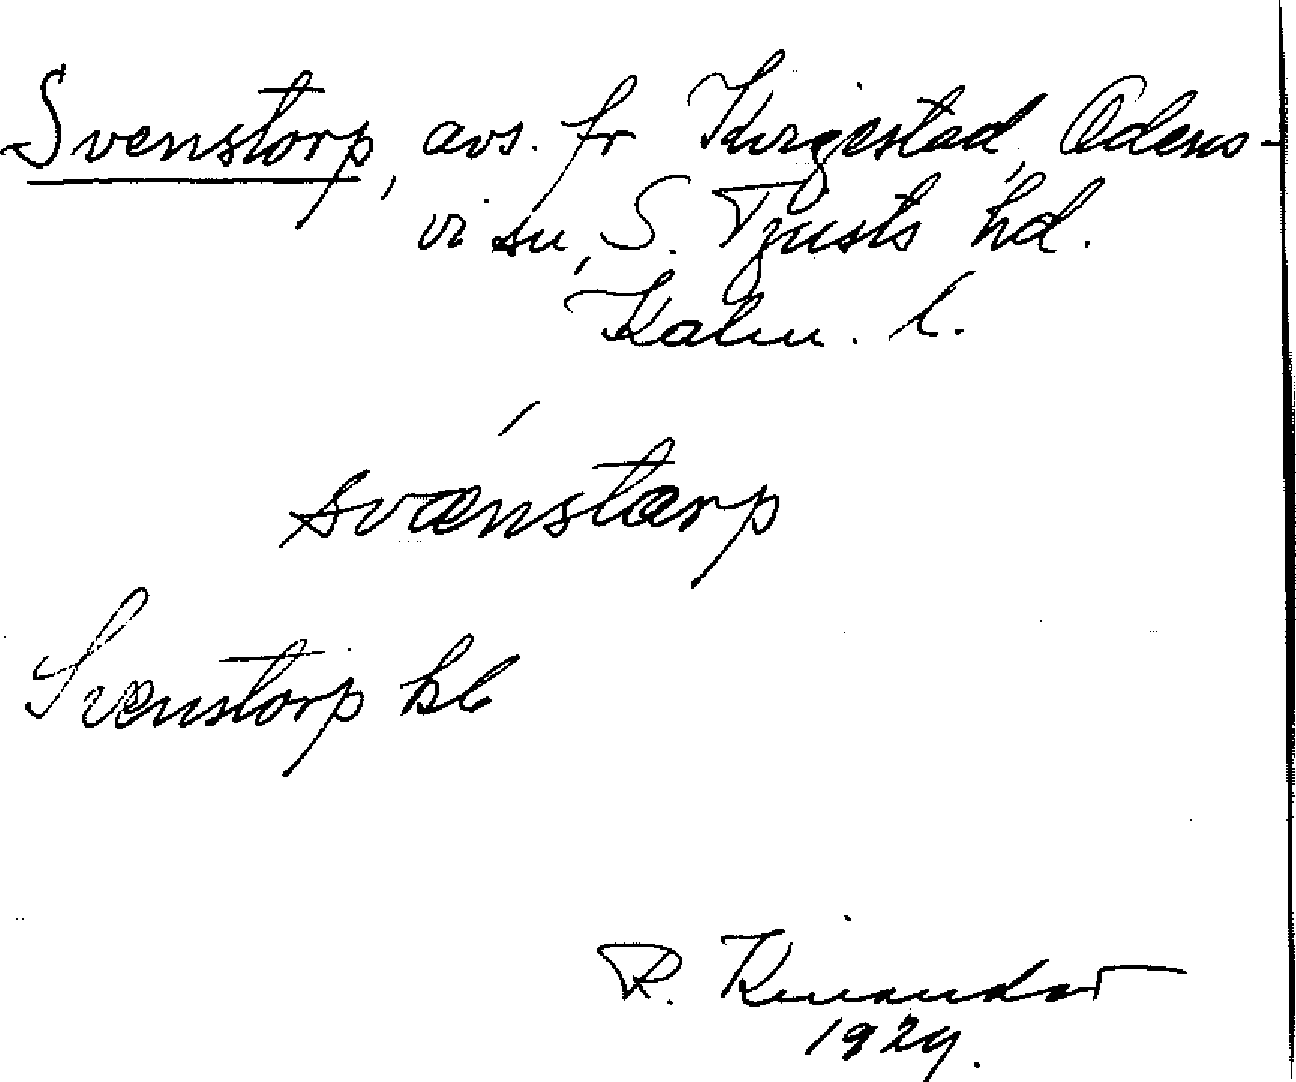 Svenstorp, avs. fr Kvigestad, Odens-
vi sn, S. Tjusts hd.
Kalm. l.
svænstærp
Svenstorp kb
R. Kinander
1929.